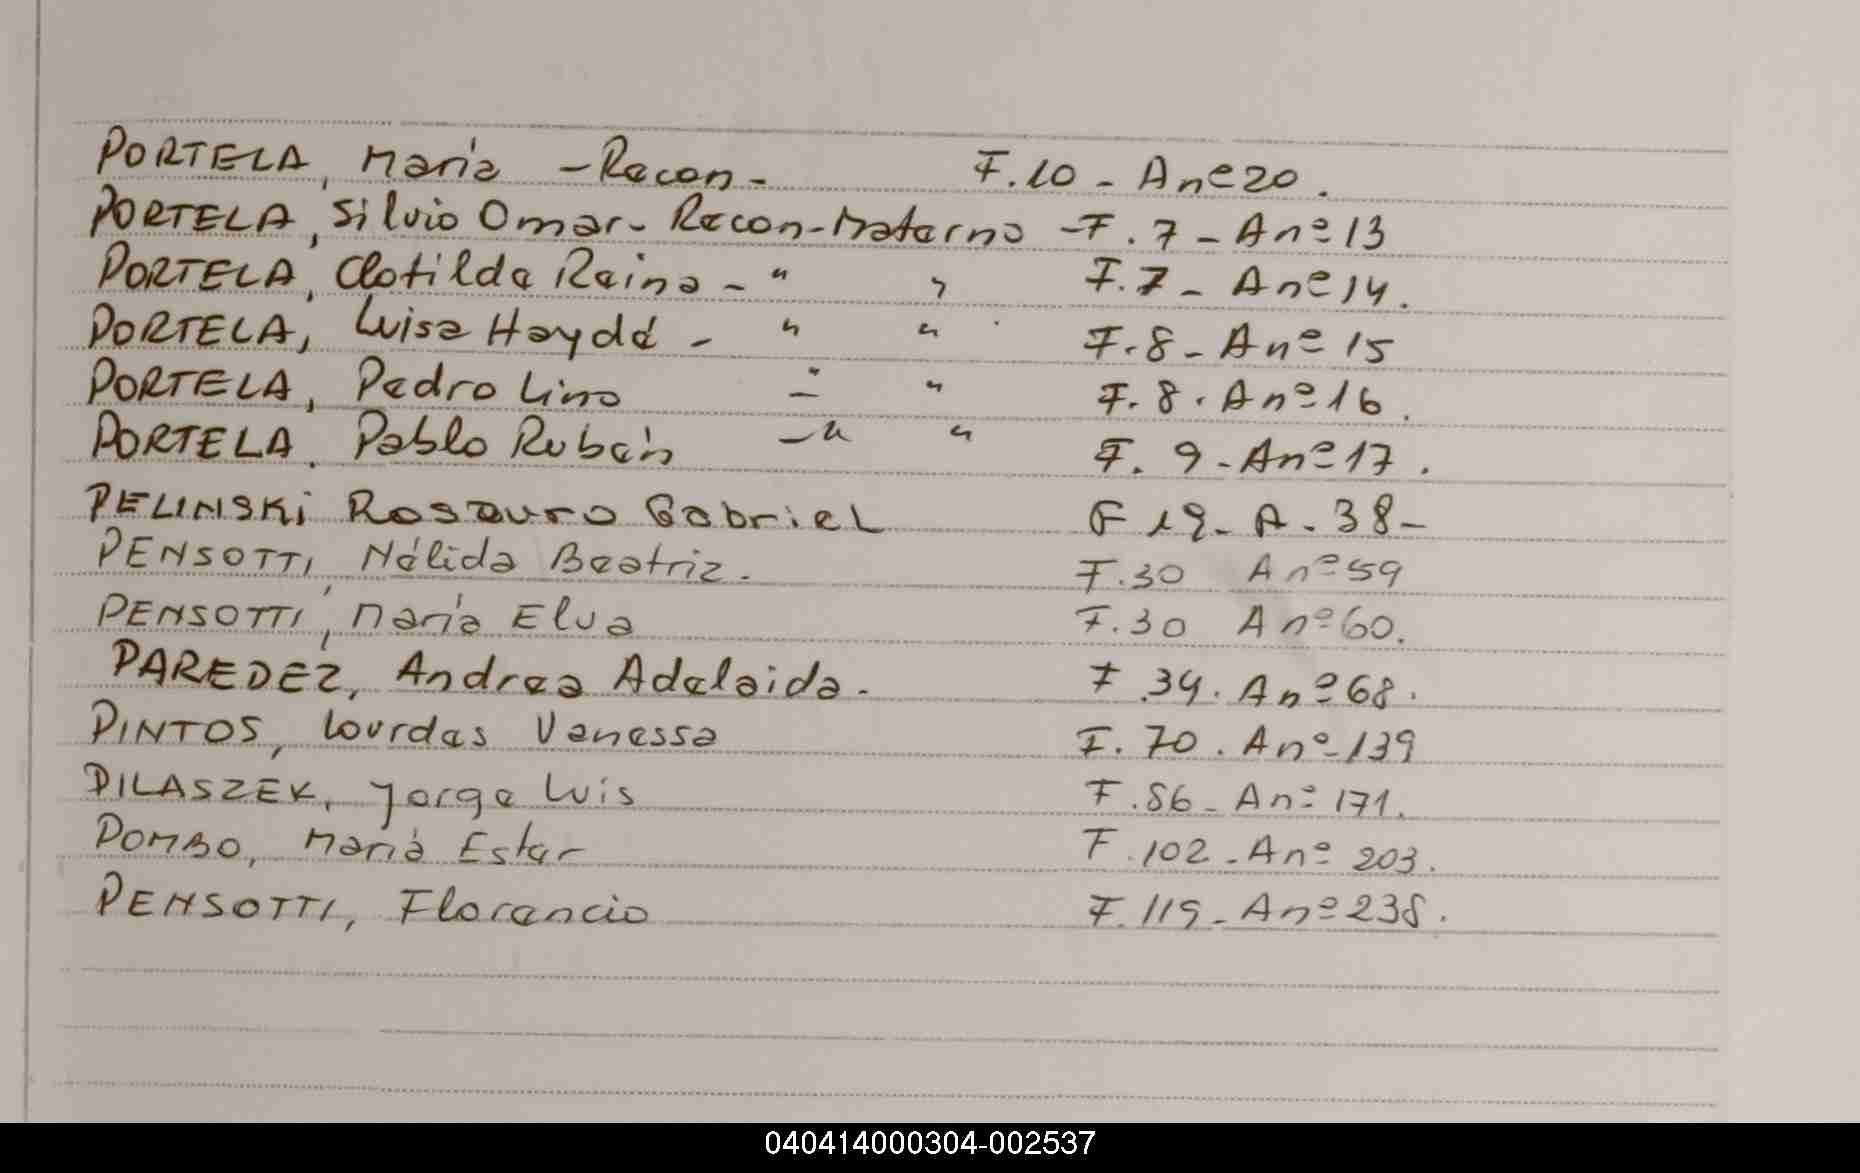 PORTELA, María - Recon - F.10 - A nº 20.
PORTELA, Silvio Omar - Recon - Materno - F. 7 - A nº 13
PORTELA, Clotilde Reina - " " F. 7 - A nº 14.
PORTELA, Luisa Haydé - " " F. 8 - A nº 15
PORTELA, Pedro Lino - " " F. 8. A nº 16.
PORTELA. Pablo Rubén - " " F. 9 - A nº 17.
PELINSKI Rosauro Gabriel F 19 - A - 38 -
PENSOTTI, Nélida Beatriz. F. 30 A nº 59
PENSOTTI, María Elva F. 30 A nº 60.
PAREDEZ, Andrea Adelaida. F 34. A nº 68.
PINTOS, Lourdes Vanessa F. 70. A nº 139
PILASZEK, Jorge Luis F. 86 - A nº 171.
POMBO, María Ester F. 102 - A nº 203.
PENSOTTI, Florencio F. 119 - A nº 238.
040414000304-002537